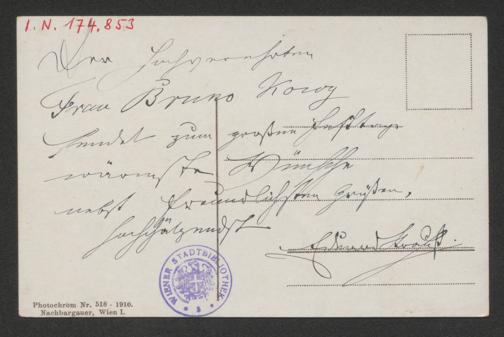 I.N. 174.853
Der hochverehrten
Frau Bruno
sendet zum großen Festtage
wärmste Wünsche
nebst freundlichsten Grüßen,
hochschätzendst
WIENER STADTBIBLIOTHEK
Photochrom Nr. 518 - 1910.
Nachbargauer, Wien I.